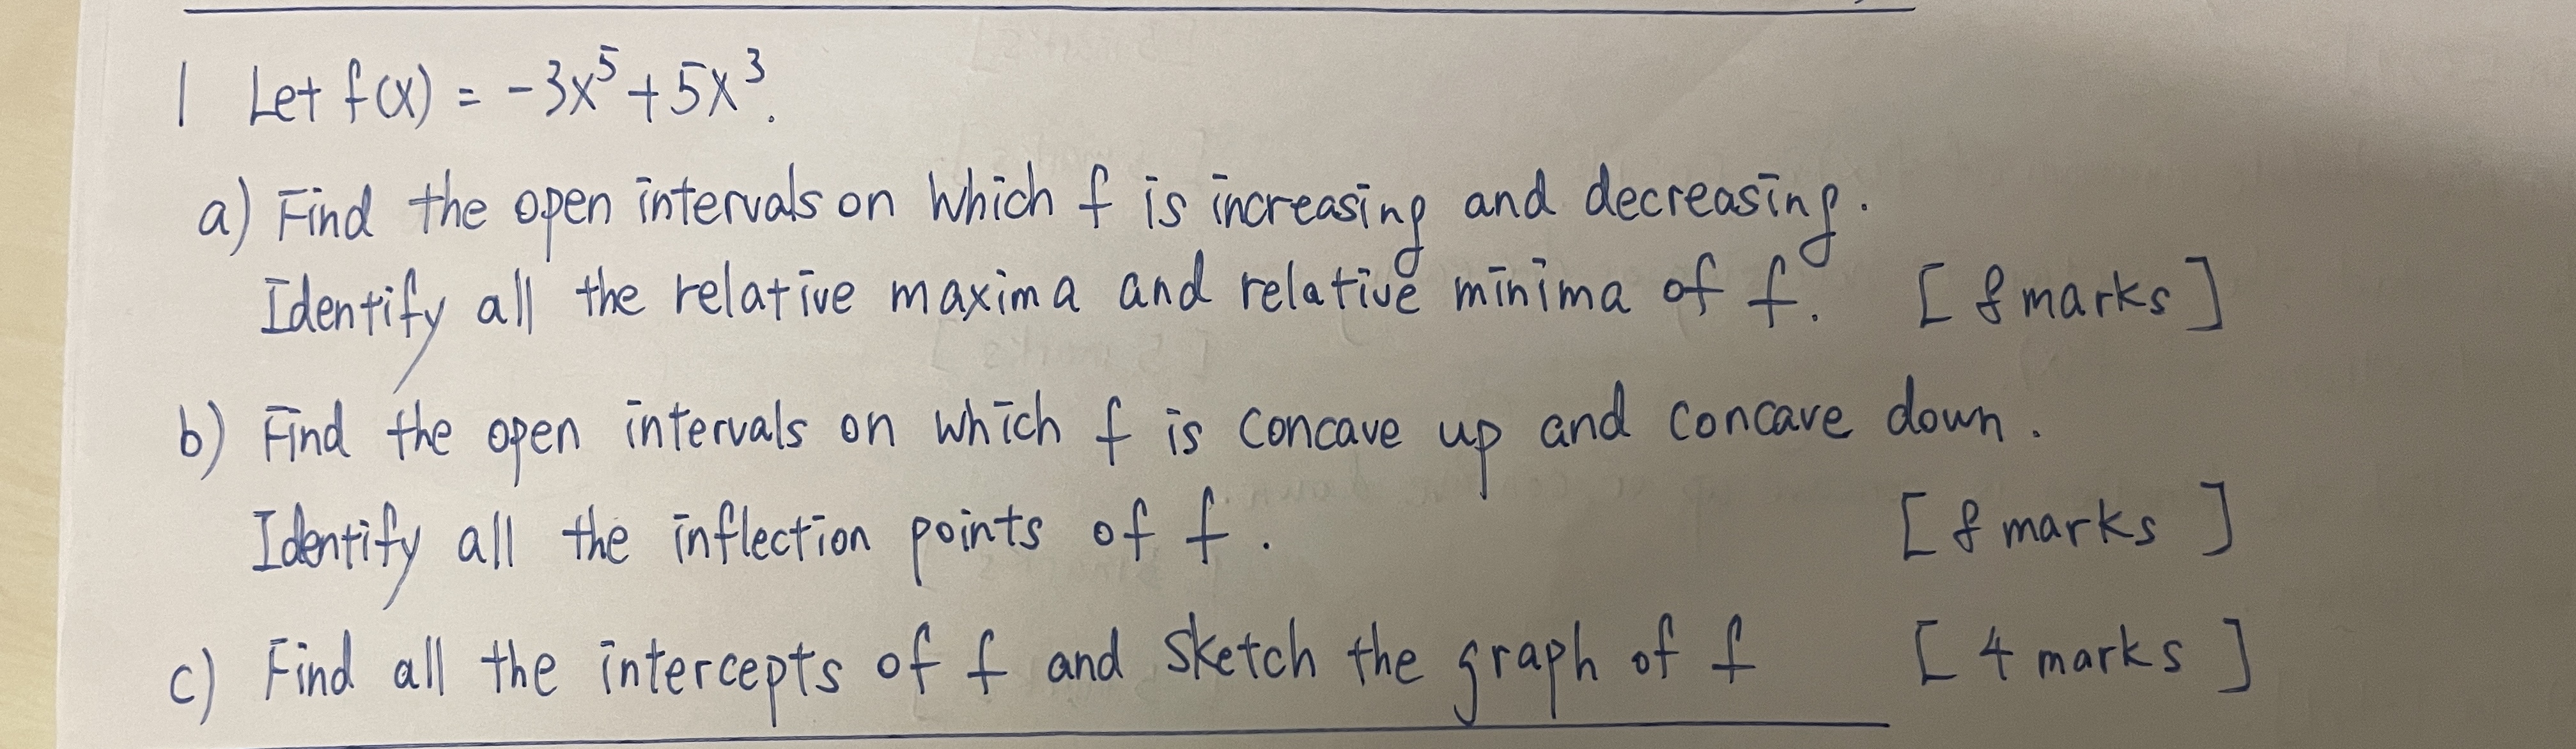 1 Let f(x) = -3x⁵ + 5x³.
a) Find the open intervals on which f is increasing and decreasing.
Identify all the relative maxima and relative minima of f. [8 marks]
b) Find the open intervals on which f is concave up and concave down.
Identify all the inflection points of f. [8 marks]
c) Find all the intercepts of f and sketch the graph of f [4 marks]